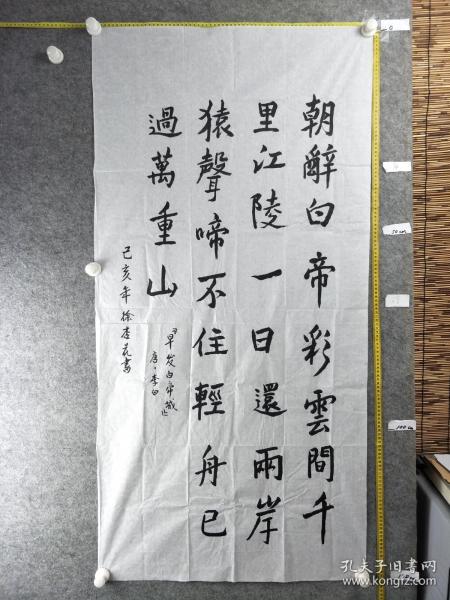 朝辭白帝彩雲間千
里江陵一日還兩岸
猿聲啼不住輕舟已
過萬重山
早发白帝城
唐·李白
己亥年徐杏花書
50cm
100cm
孔夫子旧书网
www.kongfz.com